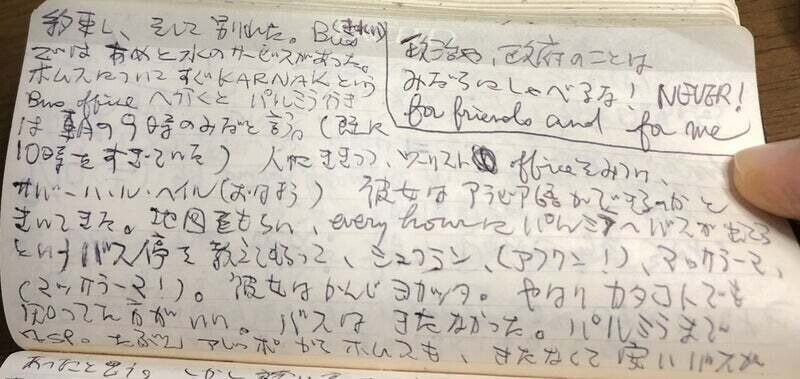 約束し、そして別れた。Bus(きれい)
ではあめと水のサービスがあった。
ホムスについてすぐKARNAKという
Bus officeへ行くとパルミラ行き
は朝の9時のみだと言う。(既に
10時をすぎていた) 人にきいて、ツーリストofficeをみつけ、
サバーハ・ル・ヘイル(おはよう) 彼女はアラビア語ができるのかと
きいてきた。地図をもらい、every hourにパルミラへバスが出てる
というバス停を教えてもらって、シュクラン、(アフワン!)、マッサラーマ、
(マッサラーマ!)。彼女はかんじヨカッタ。やはりカタコトでも
知ってた方がいい。バスはきたなかった。パルミラまで
たぶんアレッポからホムスも、きたなくて安いバスが
あったと思う。しかし
政治や、政府のことは
みだらにしゃべるな! NEVER!
for friends and for me